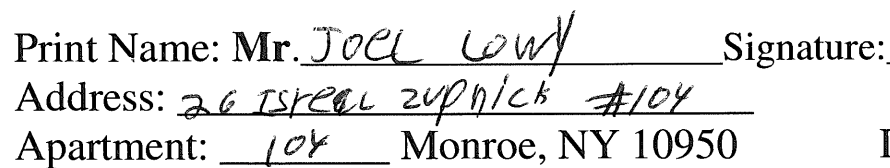 Print Name: Mr. Joel Lowy Signature:
Address: 26 Isreal zupnick #104
Apartment: 104 Monroe, NY 10950